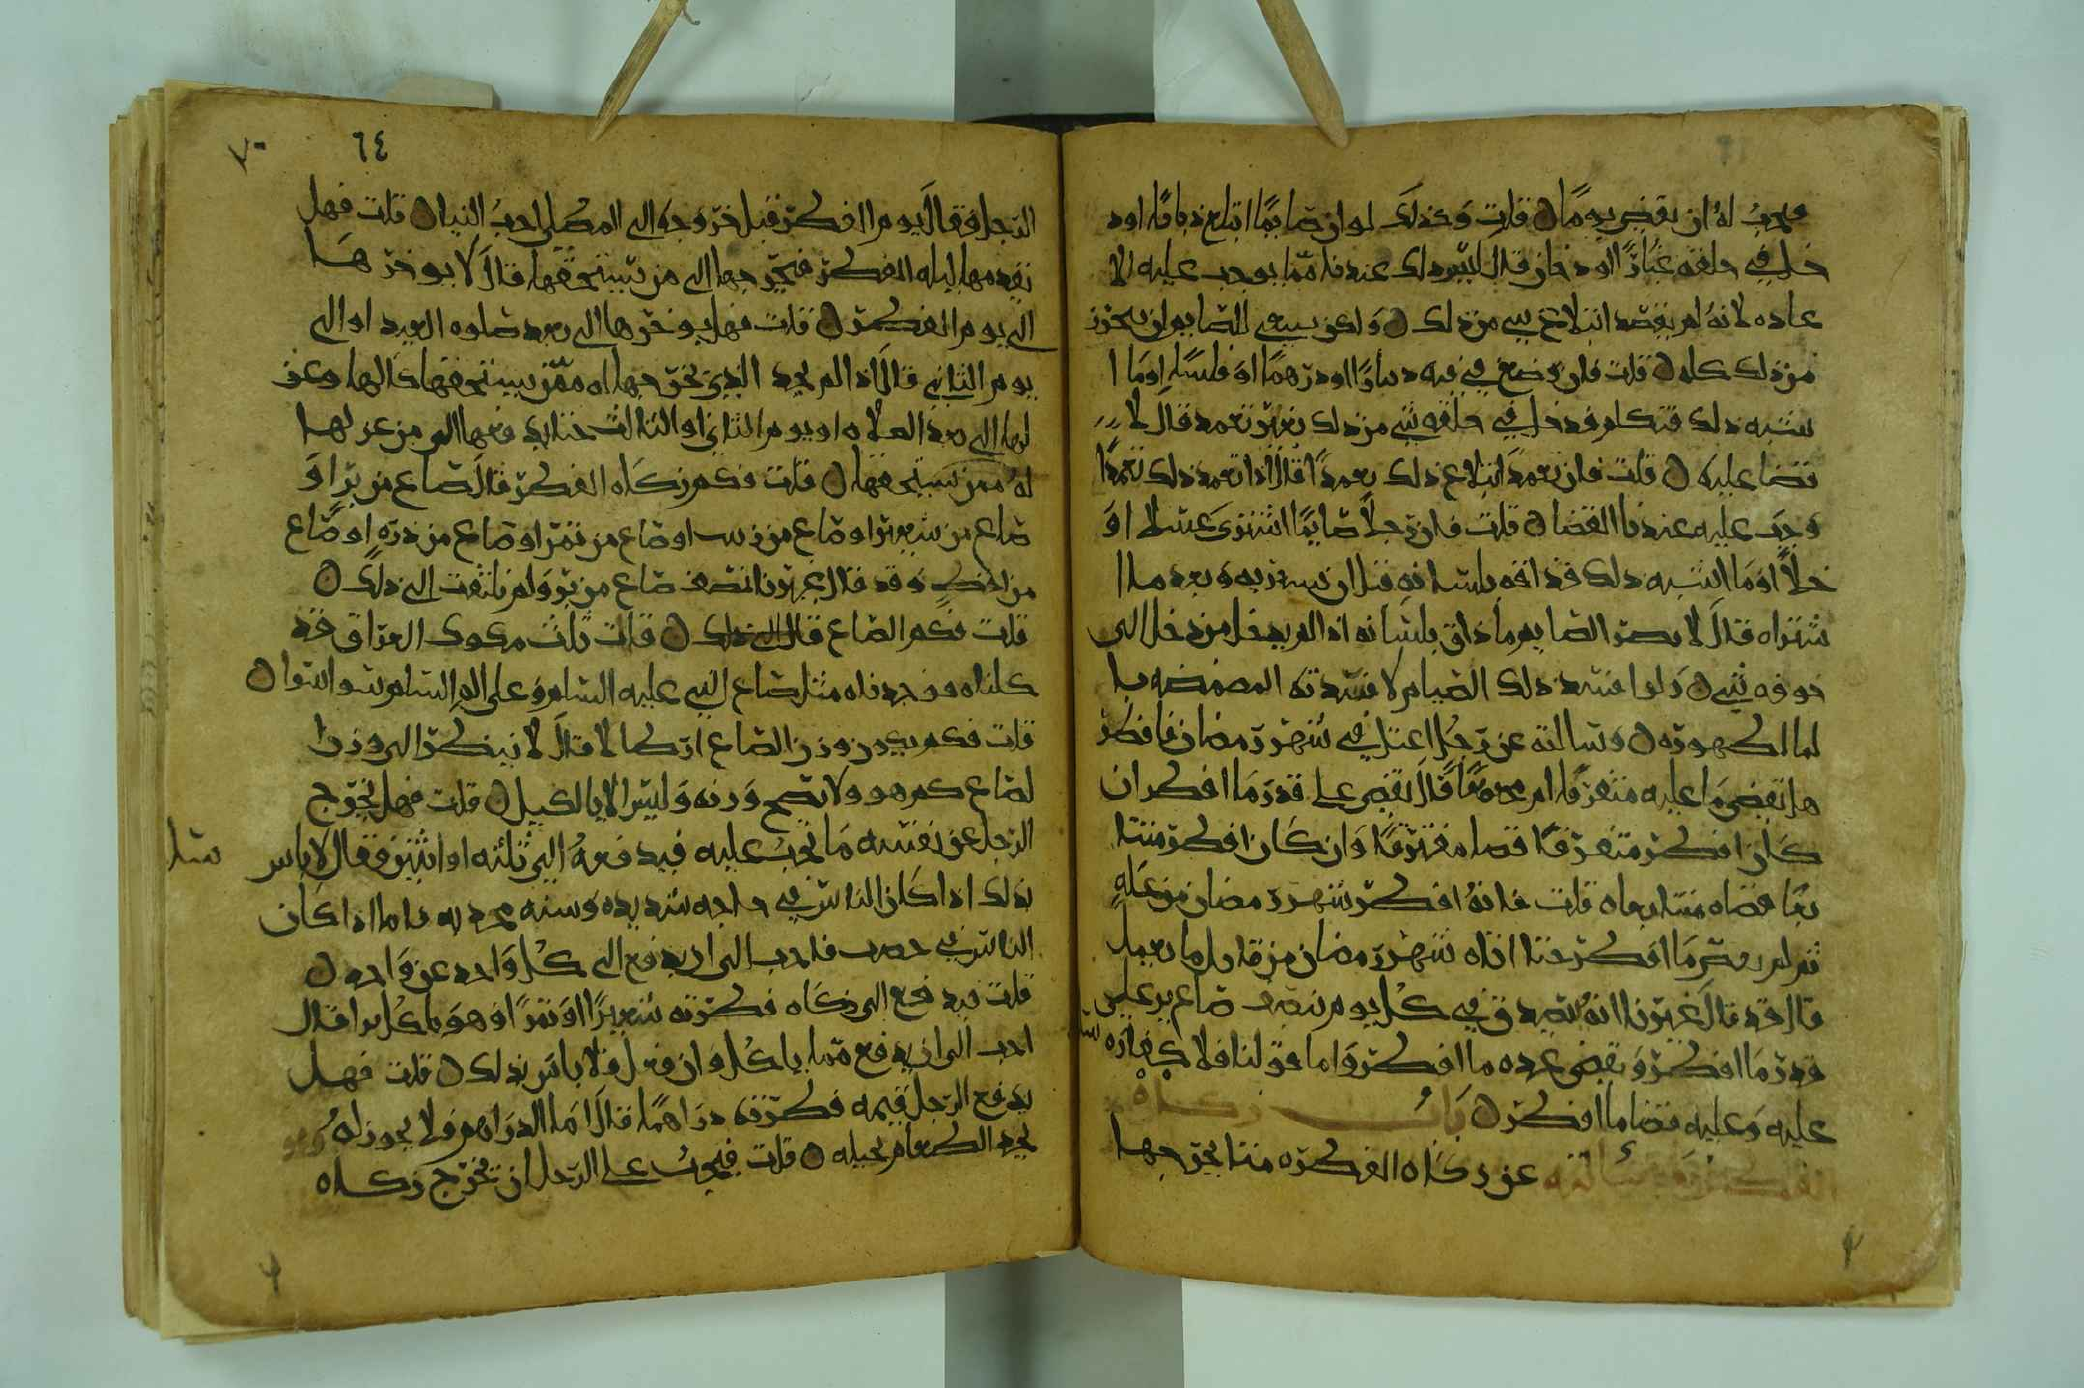 فيجب له ان يقضي يوما ن قلت وكذلك لو ان صايما ابتلع ذبابا او د
خل في حلقه غبار او دخان قال ليس ذلك عندنا مما يوجب عليه الا
عاده لانه لم يقصد ابتلاع شي من ذلك ن ولكن ينبغي للصايم ان يتحرز
من ذلك كله ن قلت فان وضع في فيه دينارا او درهما او فلسا او ما ا
شبه ذلك فتكلم فدخل في حلقه شي من ذلك بغير تعمد قال لا
قضا عليه ن قلت فان تعمد ابتلاع ذلك تعمدا قال اذا تعمد ذلك تعمدا
وجب عليه عندنا القضا ن قلت فان رجلا صايما اشترى عسلا او
خلا او ما اشبه ذلك فذاقه بلسانه قبل ان يشتريه وبعد ما ا
شتراه قال لا يضر الصايم ما ذاق بلسانه اذا لم يدخل من ذلك الى
جوفه شي ن ولو افسد ذلك الصيام لافسدته المضمضه با
لما لطهوره ن وسالته عن رجل اعتل في شهر رمضان فافطر
هل يقضي ما عليه متفرقا ام مجتمعا قال يقضي على قدر ما افطر ان
كان افطر متفرقا قضا مفترقا وان كان افطر متتا
بعا قضاه متتابعا ن قلت فانه افطر شهر رمضان من عله
ثم لم يقض ما افطر حتى اتاه شهر رمضان من قابل ما يعمل
قال قد قال غيرنا انه يتصدق في كل يوم بنصف صاع بر على
قدر ما افطر ويقضي عده ما افطر واما قولنا فلا كفاره
عليه وعليه قضا ما افطر ن باب زكاه
الفطر وسالته عن زكاه الفطره متى يخرجها
٦٤
٧٠
الرجل فقال يوم الفطر قبل خروجه الى المصلى احب الينا ن قلت فهل
يقدمها ليله الفطر فيخرجها الى من يستحقها قال لا يوخرها
الى يوم الفطر ن قلت فهل يوخرها الى بعد صلوه العيد او الى
يوم الثاني قال اذا لم يجد الذي يخرجها له ممن يستحقها كالها وعز
لها الى بعد الصلاه او يوم الثاني او الثالث حتى يدفعها الى من عزلها
له ممن يستحقها ن قلت فكم زكاه الفطر قال صاع من بر او
صاع من شعير او صاع من زبيب او صاع من تمر او صاع من ذره او صاع
من اقط وقد قال غيرنا نصف صاع من بر ولم نلتفت الى ذلك ن
قلت فكم الصاع قال ذلك ن قلت ثلث مكوك العراق قد
كلناه فوجدناه مثل صاع النبي عليه السلم وعلى اله السلم سوا سوا ن
قلت فكم يكون وزن الصاع ارطالا قال لا ينظر الى وزن ا
لصاع كم هو ولا يصح وزنه وليس الا بالكيل ن قلت فهل يخرج
الرجل عن نفسه ما يجب عليه فيدفعه الى ثلثه او اثنين فقال لا باس
بذلك اذا كان الناس في حاجه شديده وسنه مجدبه فاما اذا كان
الناس في خصب فاحب الى ان يدفع الى كل واحد عن واحد ن
قلت فيدفع الى زكاه فطرته شعيرا او تمرا وهو ياكل برا قال
احب الى ان يدفع مما ياكل وان فعل فلا باس بذلك ن قلت فهل
يدفع الرجل قيمه فطرته دراهما قال اما الدراهم فلا يجوز له وهو
يجد الطعام بحيله ن قلت فيجب على الرجل ان يخرج زكاه